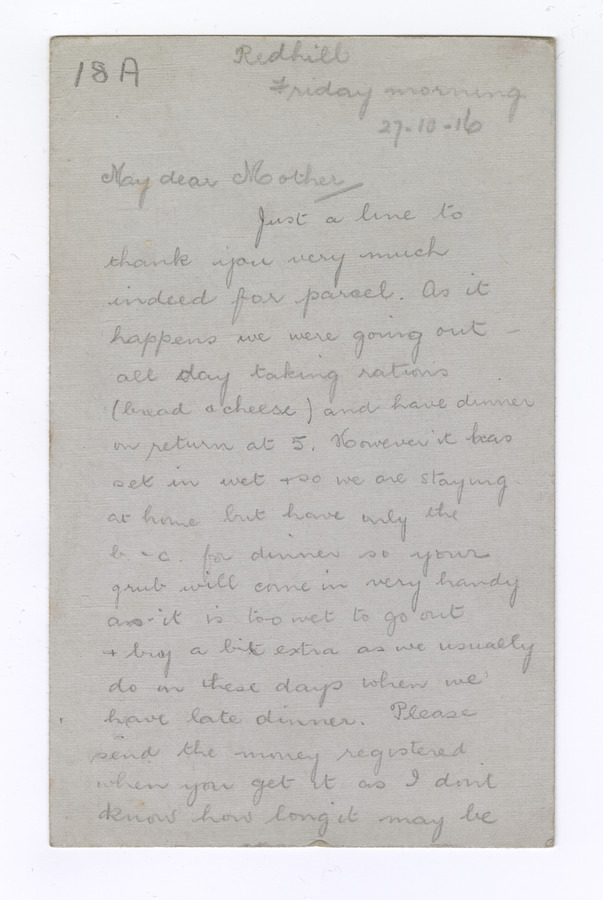 18A
Redhill
Friday morning
27-10-16
My dear Mother
Just a line to
thank you very much
indeed for parcel. As it
happens we were going out -
all day taking rations
(bread & cheese) and have dinner
on return at 5. However it has
set in wet + so we are staying
at home but have only the
b. - c. for dinner so your
grub will come in very handy
as it is too wet to go out
+ buy a bit extra as we usually
do on these days when we
have late dinner. Please
send the money registered
when you get it as I don't
know how long it may be